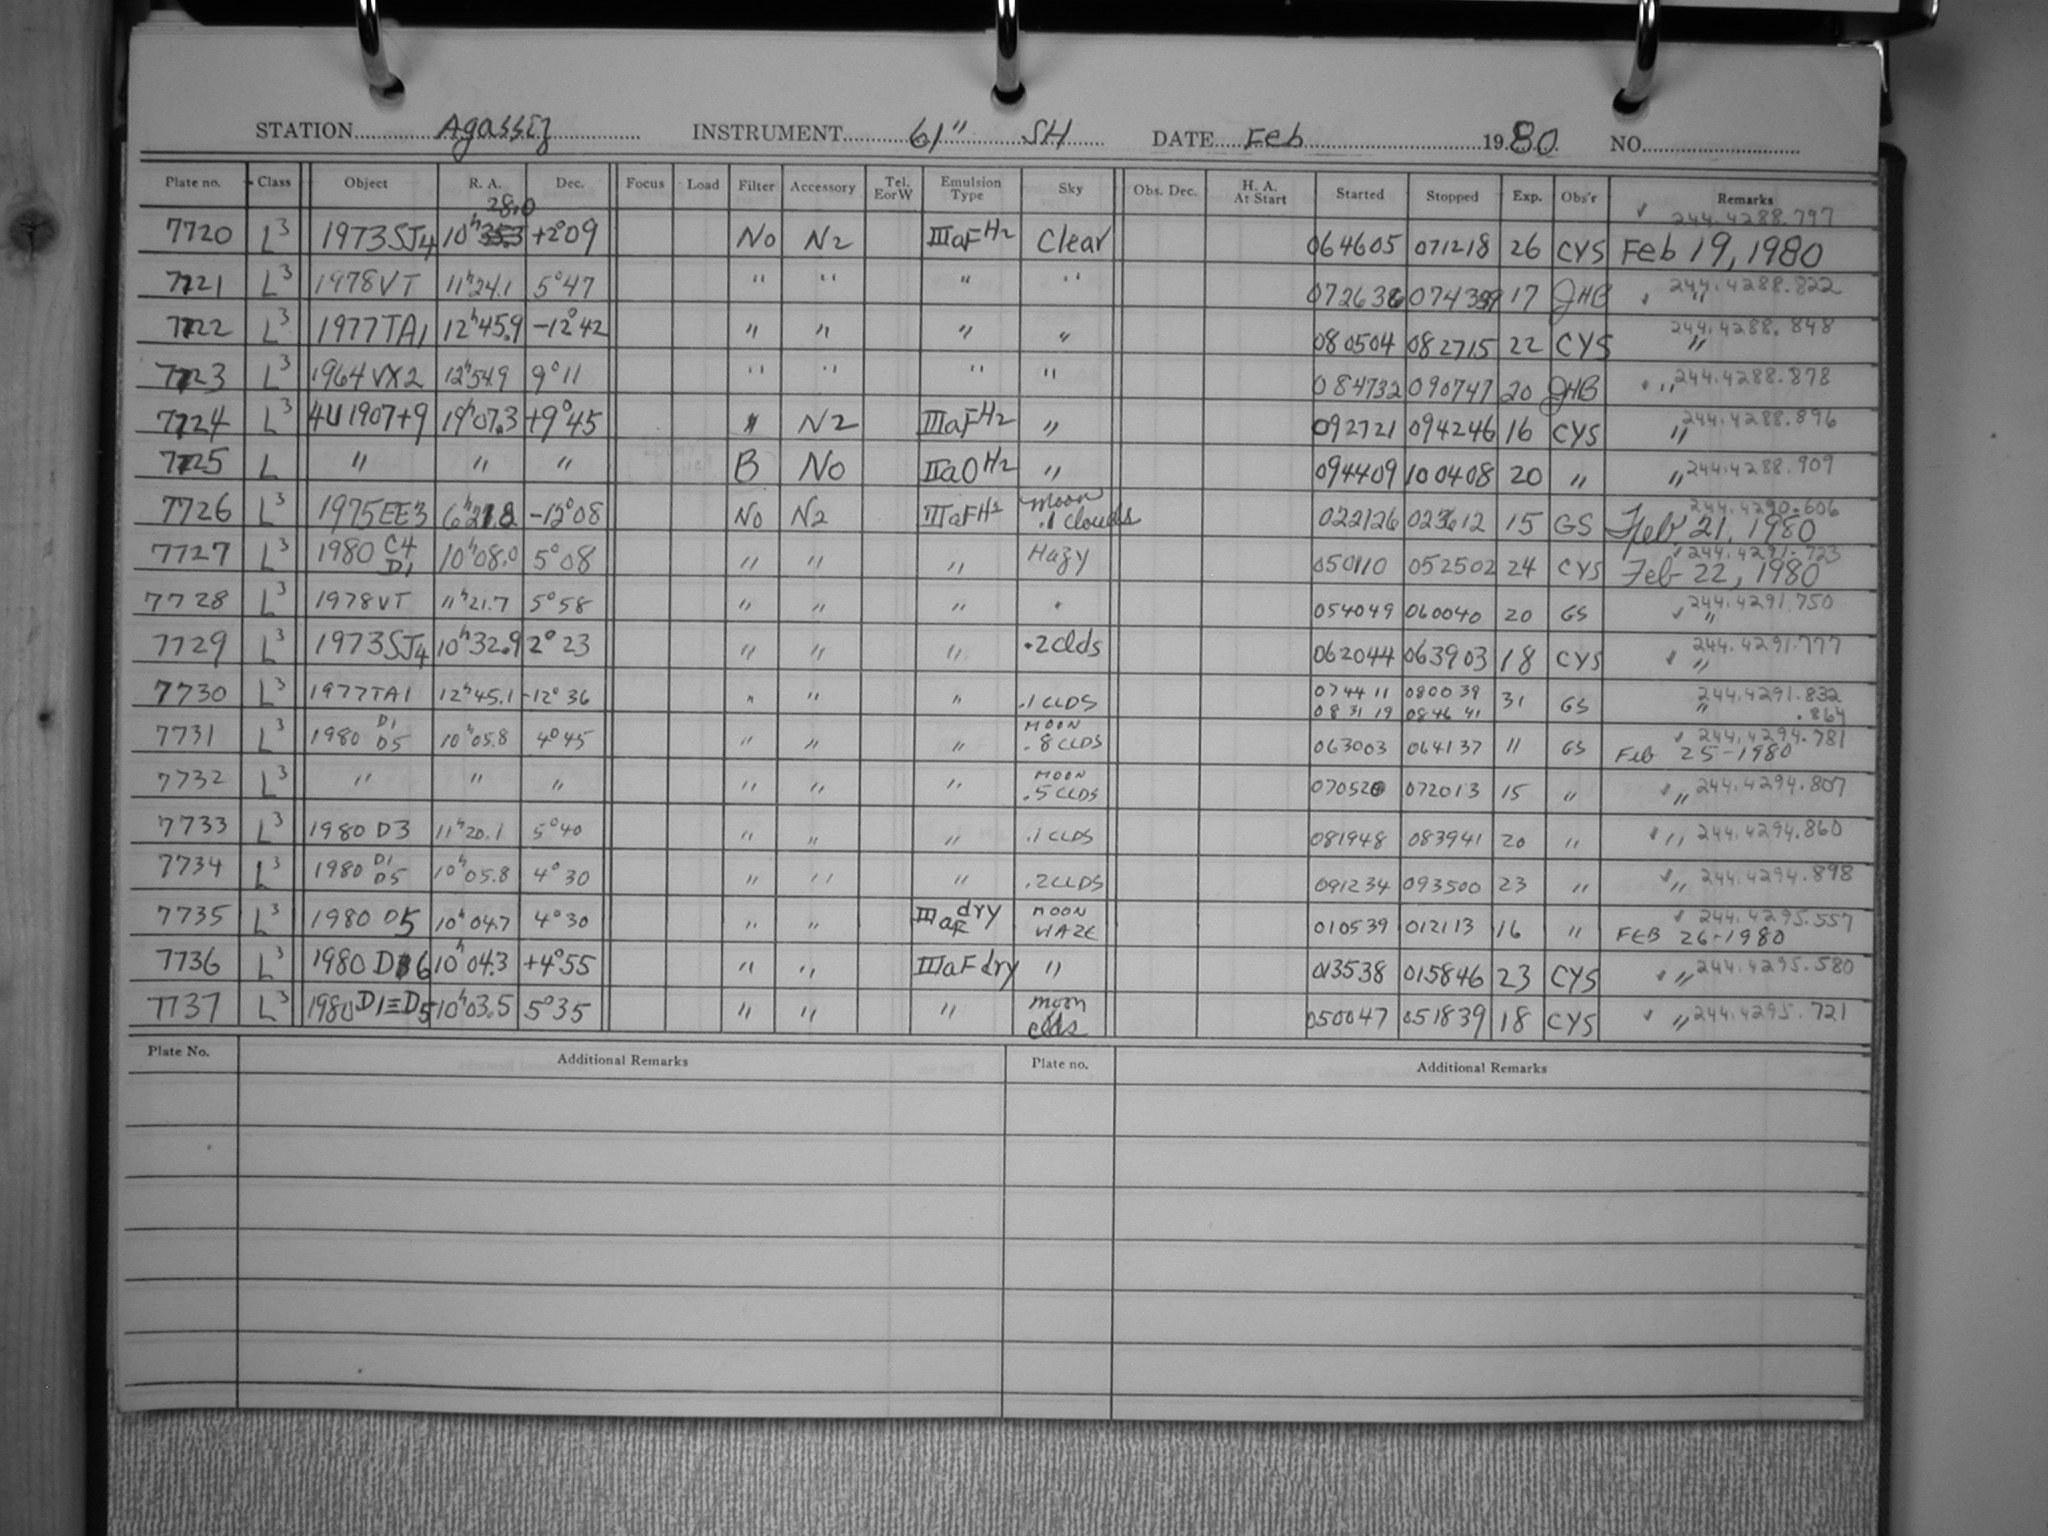 STATION Agassiz INSTRUMENT 61" SH DATE Feb 1980 NO.
Plate no. Class Object R. A. Dec. Focus Load Filter Accessory Tel. EorW Emulsion Type Sky Obs. Dec. H. A. At Start Started Stopped Exp. Obs'r Remarks
28.0 244.4288.797
7720 L3 1973SJ4 10h35.3 +2°09 No N2 IIIaFH2 Clear 064605 071218 26 CYS Feb 19, 1980
7721 L3 1978VT 11h24.1 5°47 " " " " 072636 074339 17 JHB " 244.4288.822
7722 L3 1977TA1 12h45.9 -12°42 " " " " 080504 082715 22 CYS " 244.4288.848
7723 L3 1964VX2 12h54.9 9°11 " " " " 084732 090747 20 JHB " 244.4288.878
7724 L3 4U1907+9 19h07.3 +9°45 " N2 IIIaFH2 " 092721 094246 16 CYS " 244.4288.896
7725 L " " " B No IIaOH2 " 094409 100408 20 " " 244.4288.909
7726 L3 1975EE3 6h21.8 -12°08 No N2 IIIaFH2 moon .1 clouds 022126 023612 15 GS 244.4290.606 Feb. 21, 1980
7727 L3 1980 C4 D1 10h08.0 5°08 " " " Hazy 050110 052502 24 CYS 244.4291.723 Feb 22, 1980
7728 L3 1978VT 11h21.7 5°58 " " " " 054049 060040 20 GS " 244.4291.750
7729 L3 1973SJ4 10h32.9 2°23 " " " .2clds 062044 063903 18 CYS " 244.4291.777
7730 L3 1977TA1 12h45.1 -12°36 " " " .1CLDS 074411 080039 31 GS " 244.4291.832
083119 084641 .864
7731 L3 1980 D1 D5 10h05.8 4°45 " " " MOON .8CLDS 063003 064137 11 GS 244.4294.781 Feb 25-1980
7732 L3 " " " " " " MOON .5CLDS 070520 072013 15 " " 244.4294.807
7733 L3 1980 D3 11h20.1 5°40 " " " .1CLDS 081948 083941 20 " " 244.4294.860
7734 L3 1980 D1 D5 10h05.8 4°30 " " " .2CLDS 091234 093500 23 " " 244.4294.898
7735 L3 1980 D5 10h04.7 4°30 " " IIIaF dry MOON HAZE 010539 012113 16 " 244.4295.557 FEB 26-1980
7736 L3 1980 D6 10h04.3 +4°55 " " IIIaF dry " 013538 015846 23 CYS " 244.4295.580
7737 L3 1980 D1≡D5 10h03.5 5°35 " " " moon clds 050047 051839 18 CYS " 244.4295.721
Plate No. Additional Remarks Plate no. Additional Remarks